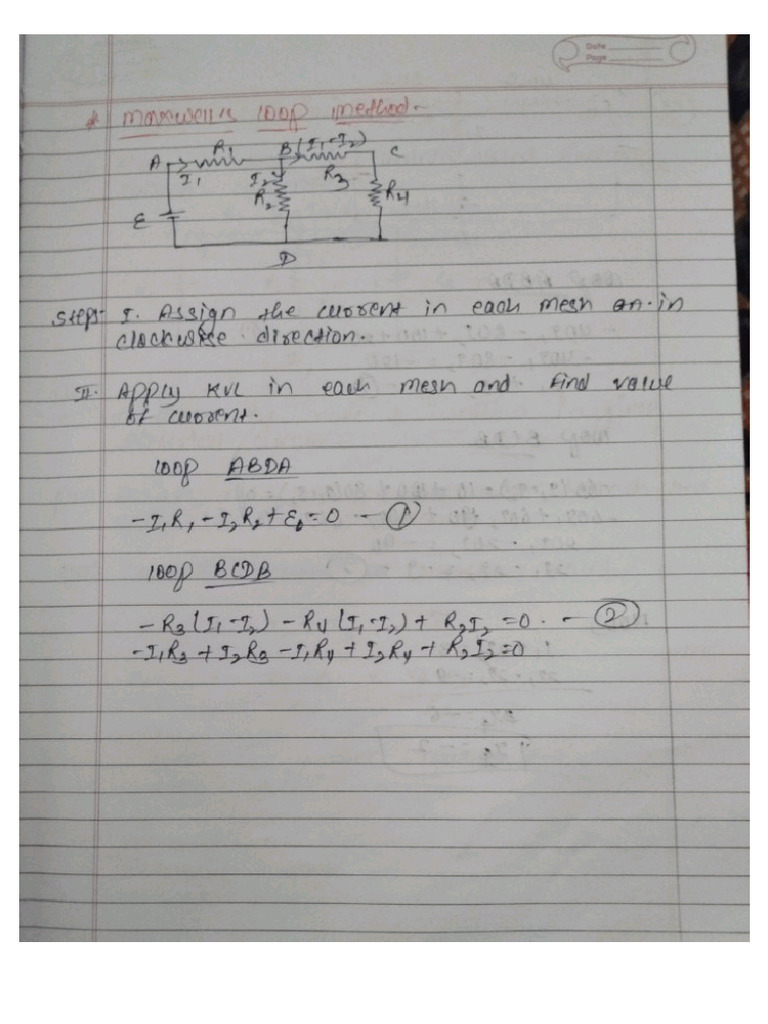 Date
Page
* Maxwell's loop method-
A R1 B (I1-I2) C
I1 I2 R3
R2 R4
E
D
Steps- I. Assign the current in each mesh in
clockwise direction.
II. Apply KVL in each mesh and find value
of current.
loop ABDA
-I1R1-I2R2+E=0 - ①
loop BCDB
-R3(I1-I2)-R4(I1-I2)+ R2I2=0. - ②
-I1R3+I2R3-I1R4+I2R4+R2I2=0